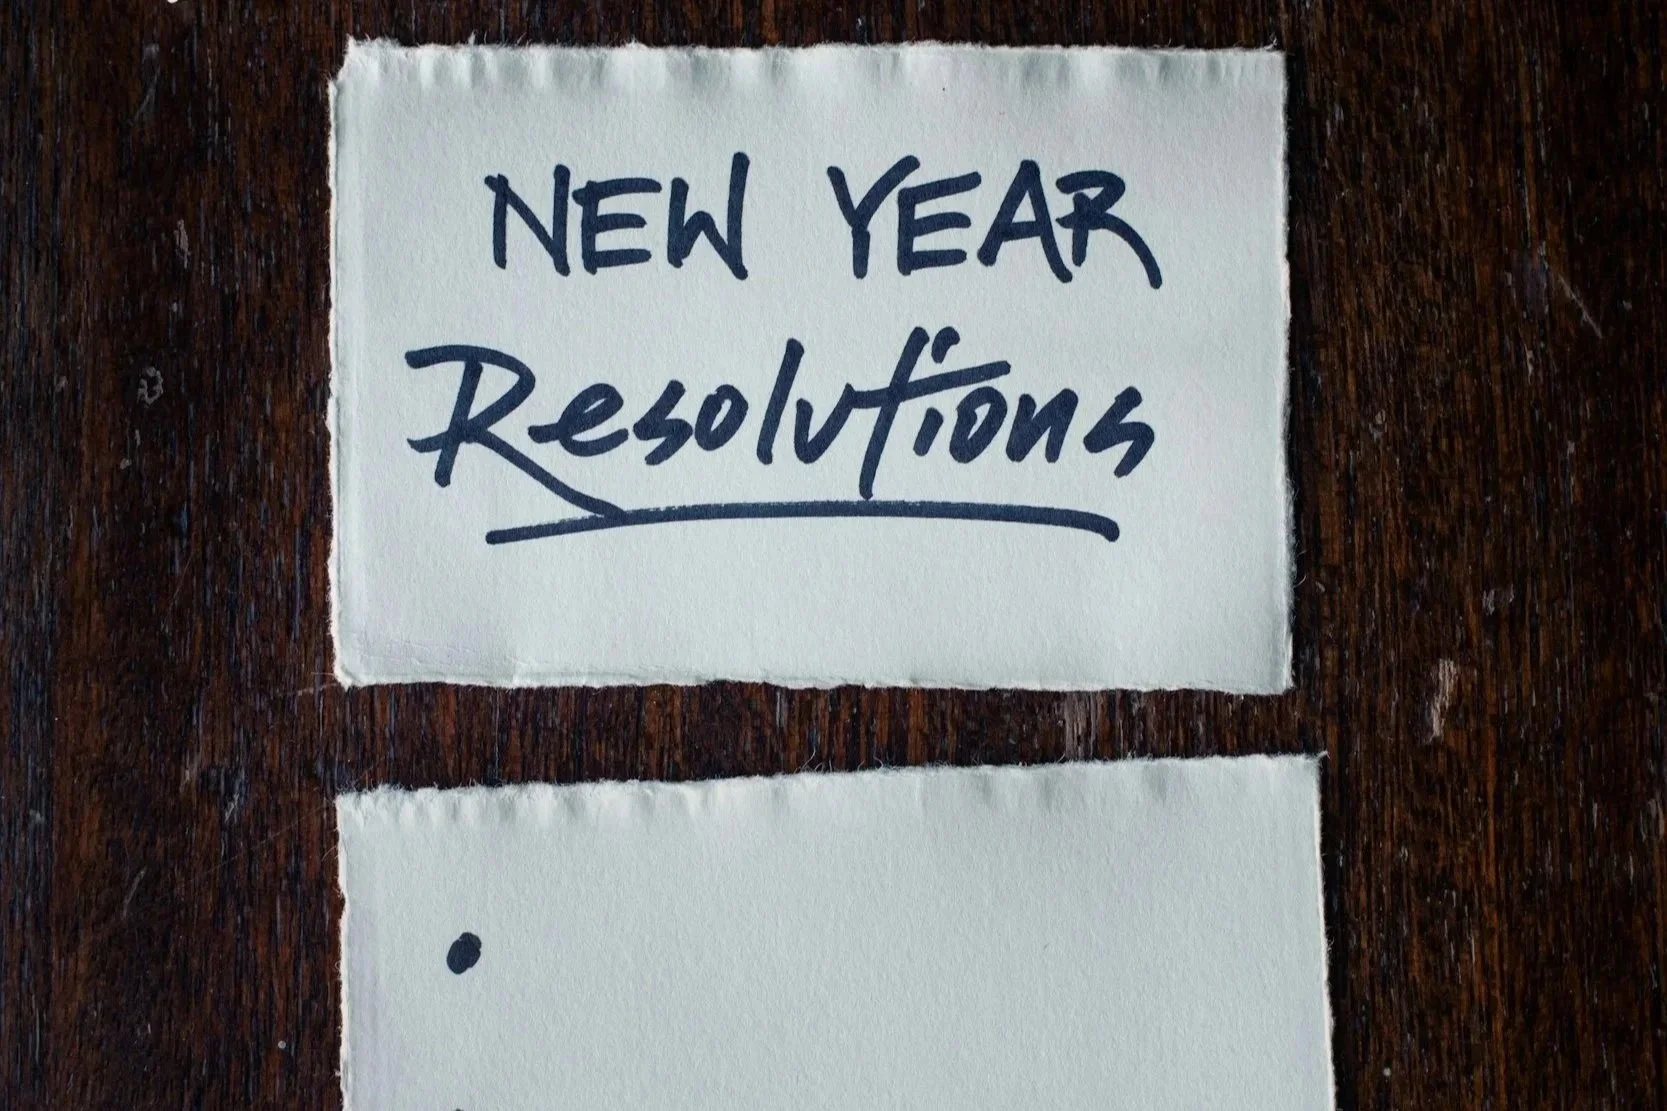 NEW YEAR
Resolutions
•